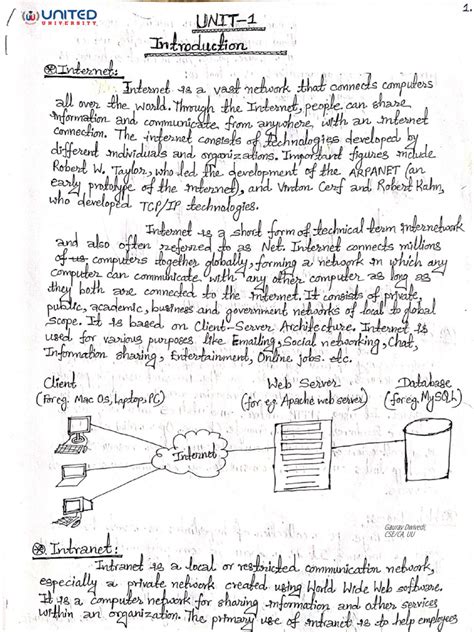 1.
UNITED
UNIVERSITY
UNIT-1
Introduction
Internet:
Internet is a vast network that connects computers
all over the world. Through the Internet, people can share
information and communicate from anywhere with an internet
connection. The internet consists of technologies developed by
different individuals and organizations. Important figures include
Robert W. Taylor, who led the development of the ARPANET (an
early prototype of the internet), and Vinton Cerf and Robert Kahn,
who developed TCP/IP technologies.
Internet is a short form of technical term internetwork
and also often referred to as Net. Internet connects millions
of computers together globally, forming a network in which any
computer can communicate with any other computer as long as
they both are connected to the internet. It consists of private,
public, academic, business and government networks of local to global
scope. It is based on Client-Server Architecture. Internet is
used for various purposes like Emailing, Social networking, Chat,
Information sharing, Entertainment, Online jobs. etc.
Client Web Server Database
(for eg. Mac Os, Laptop, PC) (for eg. Apache web server) (for eg. MySQL)
Internet
Gaurav Dwivedi,
CSE/CA, UU
Intranet:
Intranet is a local or restricted communication network,
especially a private network created using World Wide Web software.
It is a computer network for sharing information and other services
within an organization. The primary use of intranet is to help employees